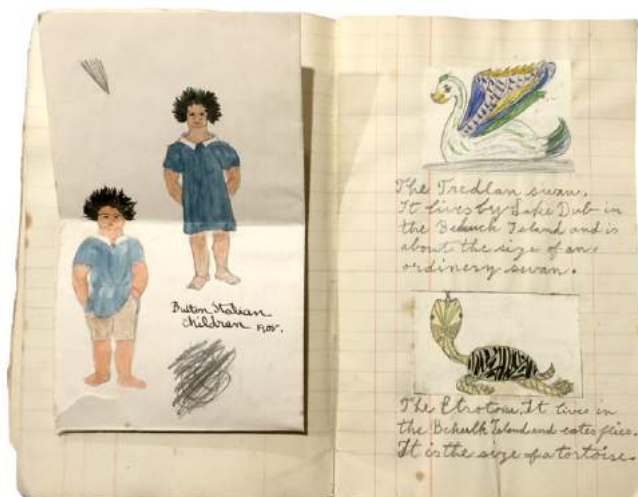 Button Italian
children
The Tredlan swan.
It lives by Lake Dub in
the Bekuck Island and is
about the size of an
ordinery swan.
The Etrotoui. It lives in
the Bekulk Island and eates flies.
It is the size of a tortoise.